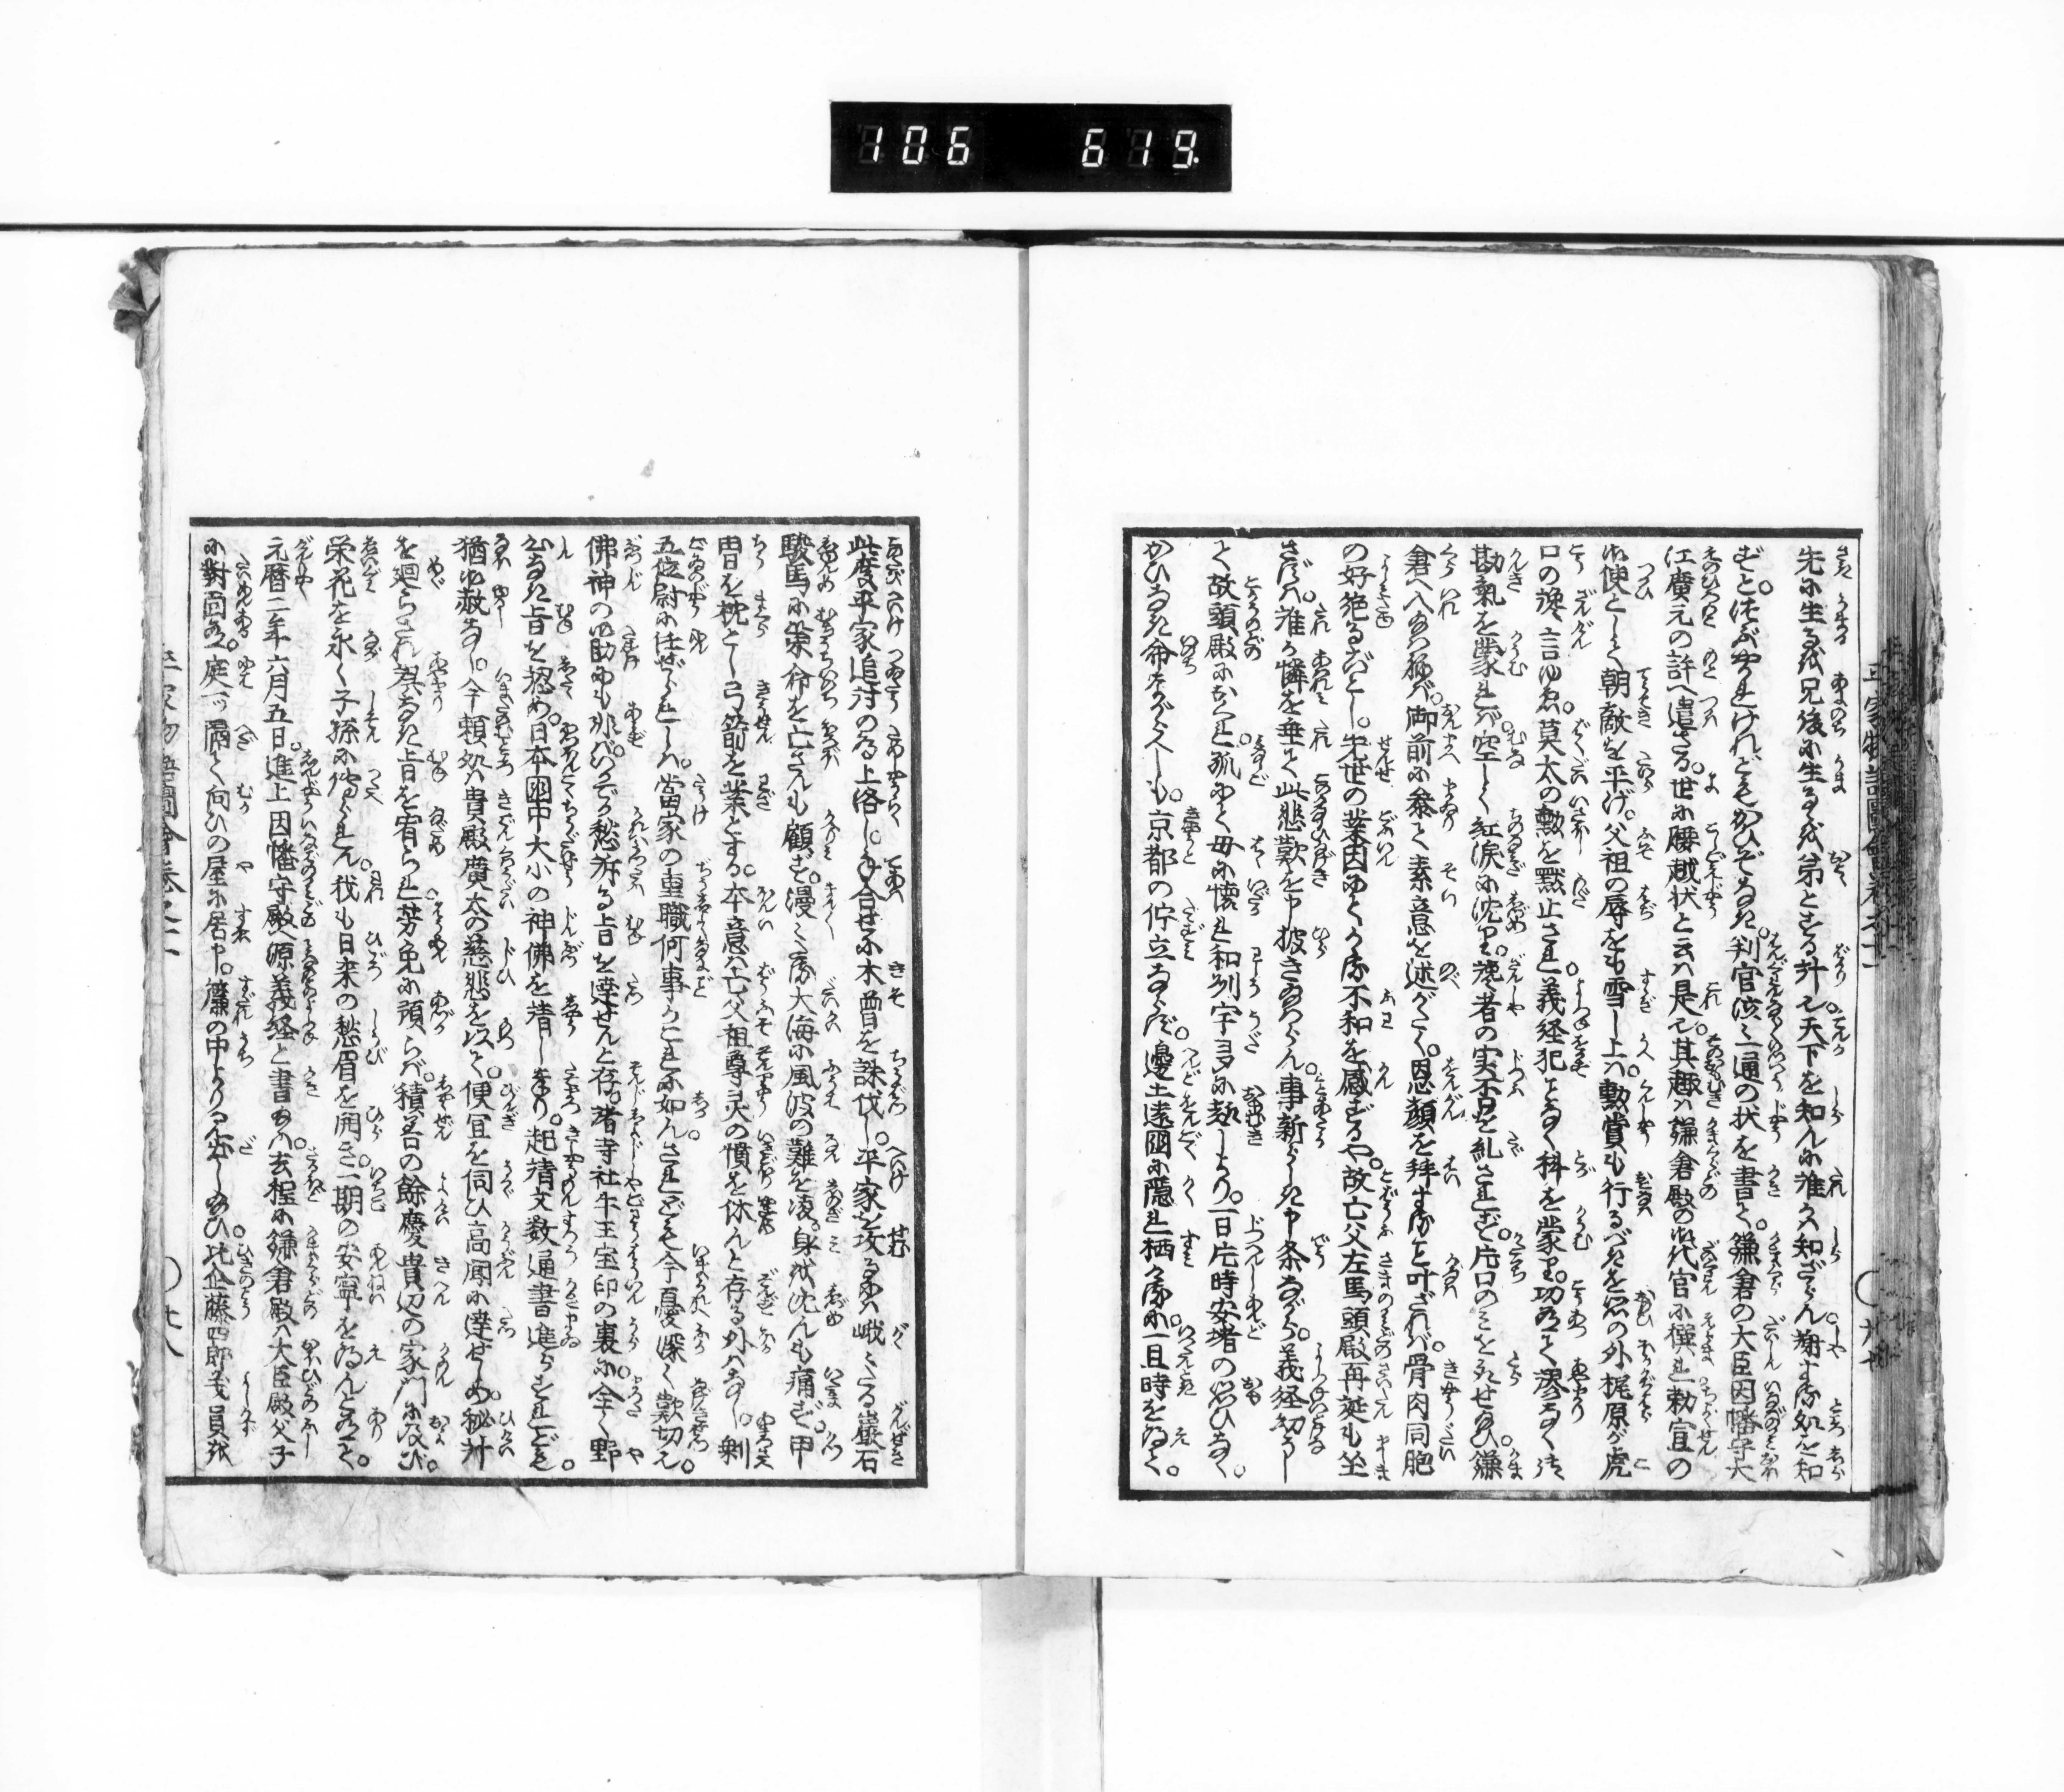 106 619
先に生るを兄後に生るを弟とする斗也天下を知んに誰か知ざらん翔する処を知
ずとつぶやきけれどもかひぞなき。判官泣々一通の状を書て。鎌倉の大臣因幡守大
江廣元の許へ遣さる。世に腰越状と云は是也。其趣は鎌倉殿の御代官に撰れ勅宣の
御使として朝敵を平げ。父祖の辱をも雪し上は勲賞も行るべきを思の外梶原が虎
口の讒言ゆゑ。莫太の勲を黙止され。義経犯となく科を蒙り。功有て謬なく御
勘氣を蒙れバ。空しく紅涙に沈り。讒者の実否を糺されず。片口のミを取せ給ひ。鎌
倉へ入らる
御前に参て素意を述がたく。恩顔を拝する事叶ざれバ。骨肉同胞
の好絶るがごとし。先世の業因ゆく
不和を感ずるや。故亡父左馬頭殿再誕も坐
さずバ。誰か憐を垂て此悲歎を申披き給らん。事新らしき申条ながら。義経幼うし
て故頭殿におくれ。孤ゆて母に懐れ和州宇多に赴しより。一日片時安堵の思ひなく。
かひなき命ながらへしも。京都の佇立ならず。邊土遠國に隠れ栖
一旦時を得て。
平家物語圖會巻之十二
此度平家追討の為上洛し。手合せに木曽を誅伐し。平家を攻るには峨々たる巌石
駿馬に策命を亡さんも顧ず。漫々たる大海に風波の難を凌。身を沈んも痛ず。甲
冑を枕とし弓箭を業とする。本意は亡父祖尊灵の憤を休んと存る外はなし。剰
五位尉に任ぜられしハ。當家の重職何事かこれに如ん。されども今憂深く歎切也。
佛神の御助にも非バ。いかでか愁訴る旨を達せんと存。諸寺社牛王宝印の裏に。全く野
心なき旨を認め。日本國中大小の神佛を請し奉り。起請文数通書進らすれども。
猶御赦なし。今頼処は貴殿廣大の慈悲を以て。便宜を伺ひ高聞に達せしめ。秘計
を廻らされ。誤なき旨を宥られ。芳免に預らバ。積善の餘慶貴辺の家門に及び。
栄花を永く子孫に傳られん。我も日来の愁眉を開き。一期の安寧を得んと有て。
元暦二年六月五日。進上因幡守殿源義経と書給は。去程に鎌倉殿ハ大臣殿父子
に對面有。庭一ッ隔て向ひの屋に居申。簾の中より見給ひ。比企藤四郎義員を